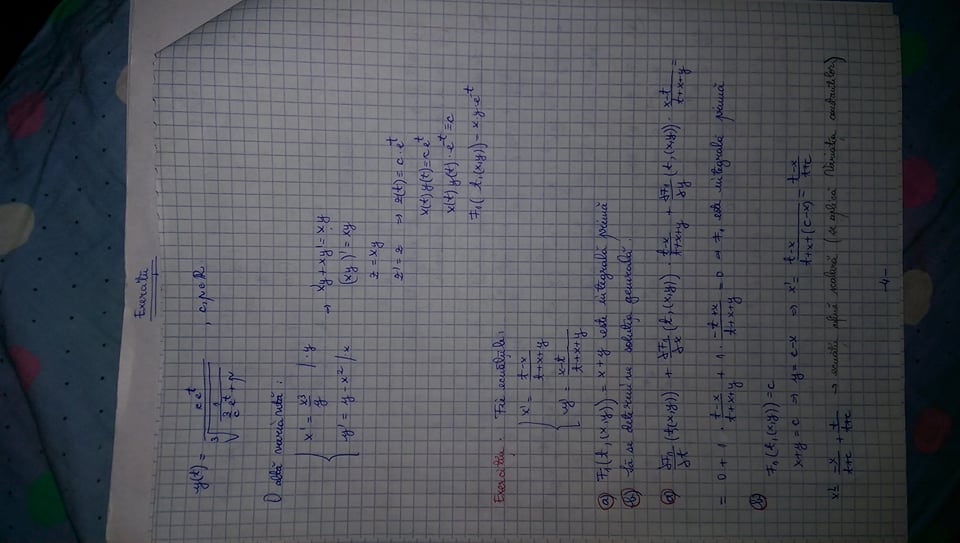 Exercitiu
y(t) = c e^t / ∛(1 / (2/c e^t + p)) , c, p ∈ ℝ
O altă variantă:
{ x' = x³/y | · y
→ x'y + xy' = xy
y' = y - x² | · x
(xy)' = xy
z = xy
z' = z ⇒ z(t) = c · e^t
x(t) y(t) = c e^t
x(t) y(t) · e^-t = c
F₁( t, (x,y)) = x · y · e^-t
Exercițiu: Fie ecuațiile:
{ x' = (t-x)/(t+x+y)
y' = (x-t)/(t+x+y)
a) F₁(t, (x,y)) = x + y este integrală primă
b) Să se determine soluția generală.
a) ∂F₁/∂t (t,(x,y)) + ∂F₁/∂x (t, (x,y)) · (t-x)/(t+x+y) + ∂F₁/∂y (t, (x,y)) · (x-t)/(t+x+y) =
= 0 + 1 · (t-x)/(t+x+y) + 1 · (-t+x)/(t+x+y) = 0 ⇒ F₁ este integrală primă
b)
F₁(t, (x,y)) = c
x+y = c ⇒ y = c-x ⇒ x' = (t-x)/(t+x+(c-x)) = (t-x)/(t+c)
x' = -x/(t+c) + t/(t+c) → ecuație afină scalară (se aplică Variația constantelor)
-4-